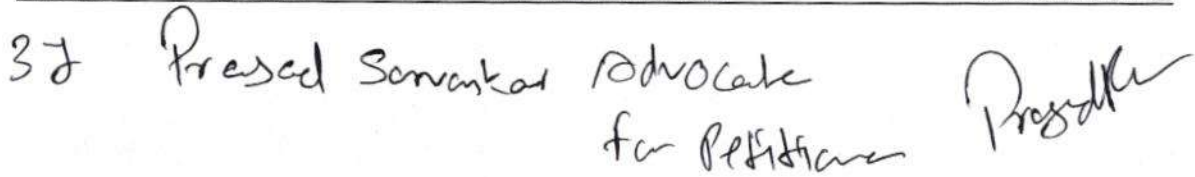 Prasad Sarvankar Advocate
for Petitioner